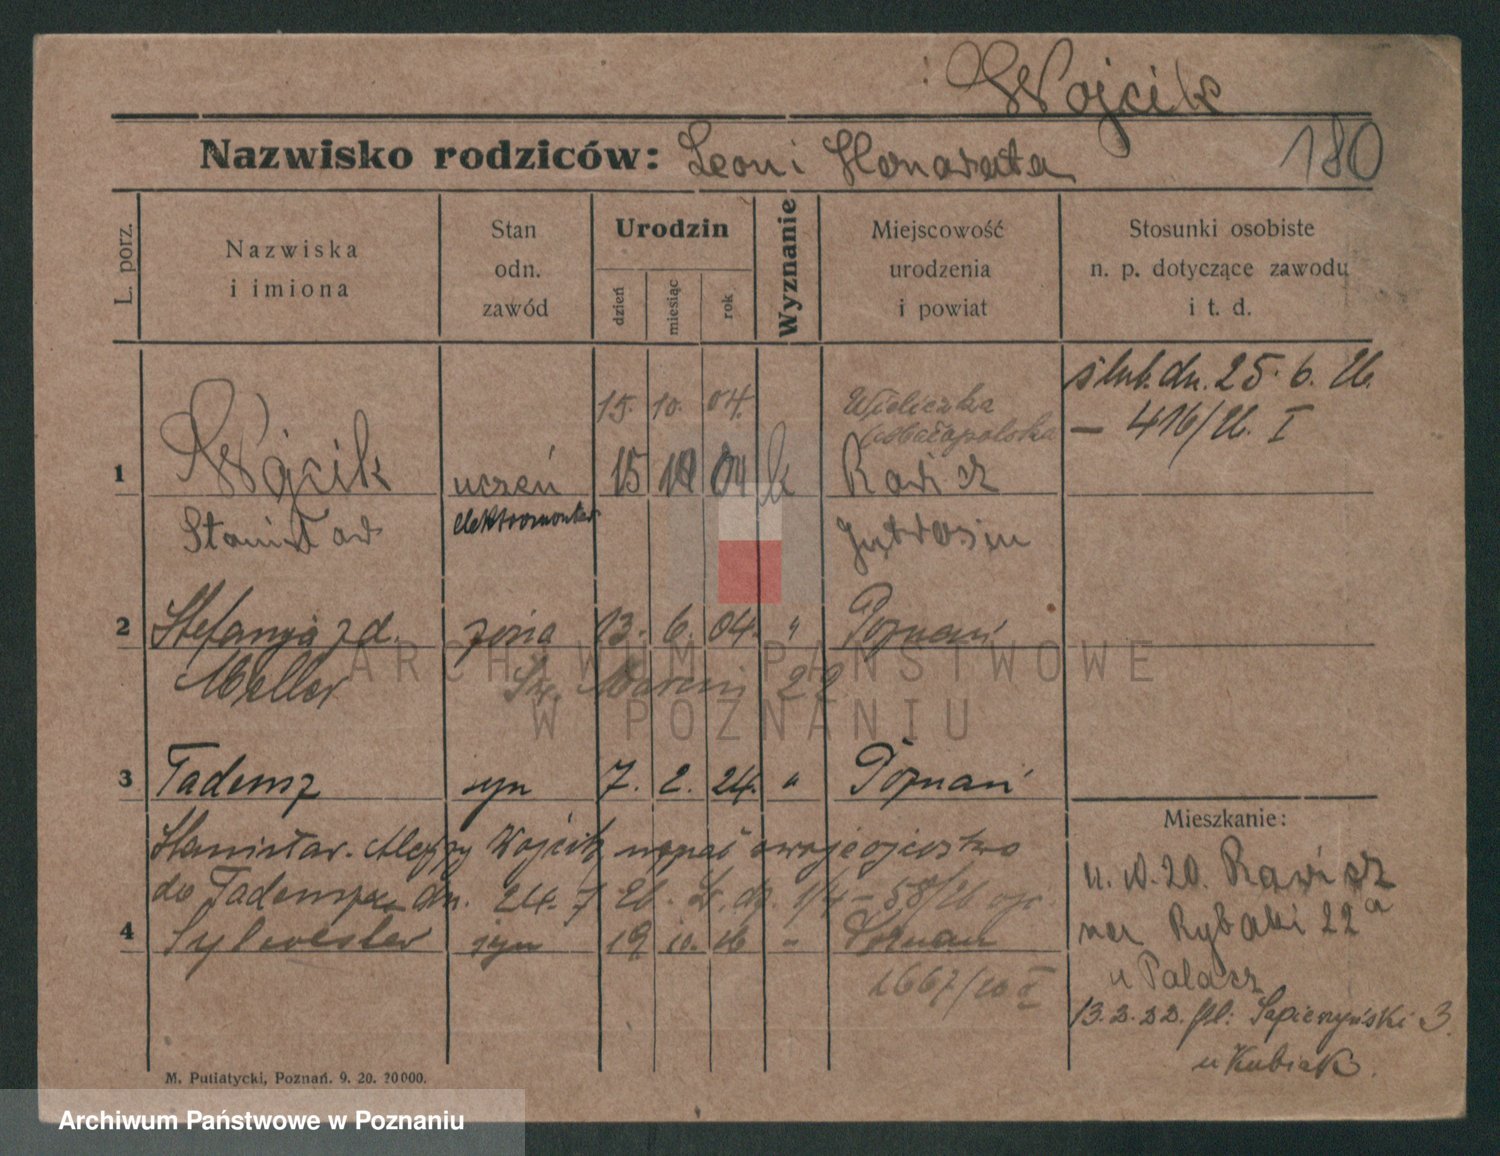 Wojcik
Nazwisko rodziców: Leon i Honorata 180
L. porz.
Nazwiska
i imiona
Stan
odn.
zawód
Urodzin
dzień
miesiąc
rok
Wyznanie
Miejscowość
urodzenia
i powiat
Stosunki osobiste
n. p. dotyczące zawodu
i t. d.
15. 10. 04. Wieliczka
Małopolska
1 Wójcik uczeń 15 10 04 k Rawicz
Stanisław elektromonter
ślub. dn. 25. 6. 26.
— 416/26. I
2 Stefanja z d. żona 13. 6. 04. " Poznań
Meller Św. Marcin 22
ARCHIWUM PAŃSTWOWE
W POZNANIU
3 Tadeusz syn 7. 2. 24. " Poznań
Stanisław Wójcik uznał swoje ojcostwo
do Tadeusza dn. 24. 7 26.
4 Sylwester syn 19 10. 26 " Poznań
1667/26 I
Mieszkanie:
20. Rawicz
na Rybaki 22a
u Palacz
13. 2. 22. pl: Sapieżyński 3.
u Kubiak.
M. Putiatycki, Poznań. 9. 20. 20000.
Archiwum Państwowe w Poznaniu